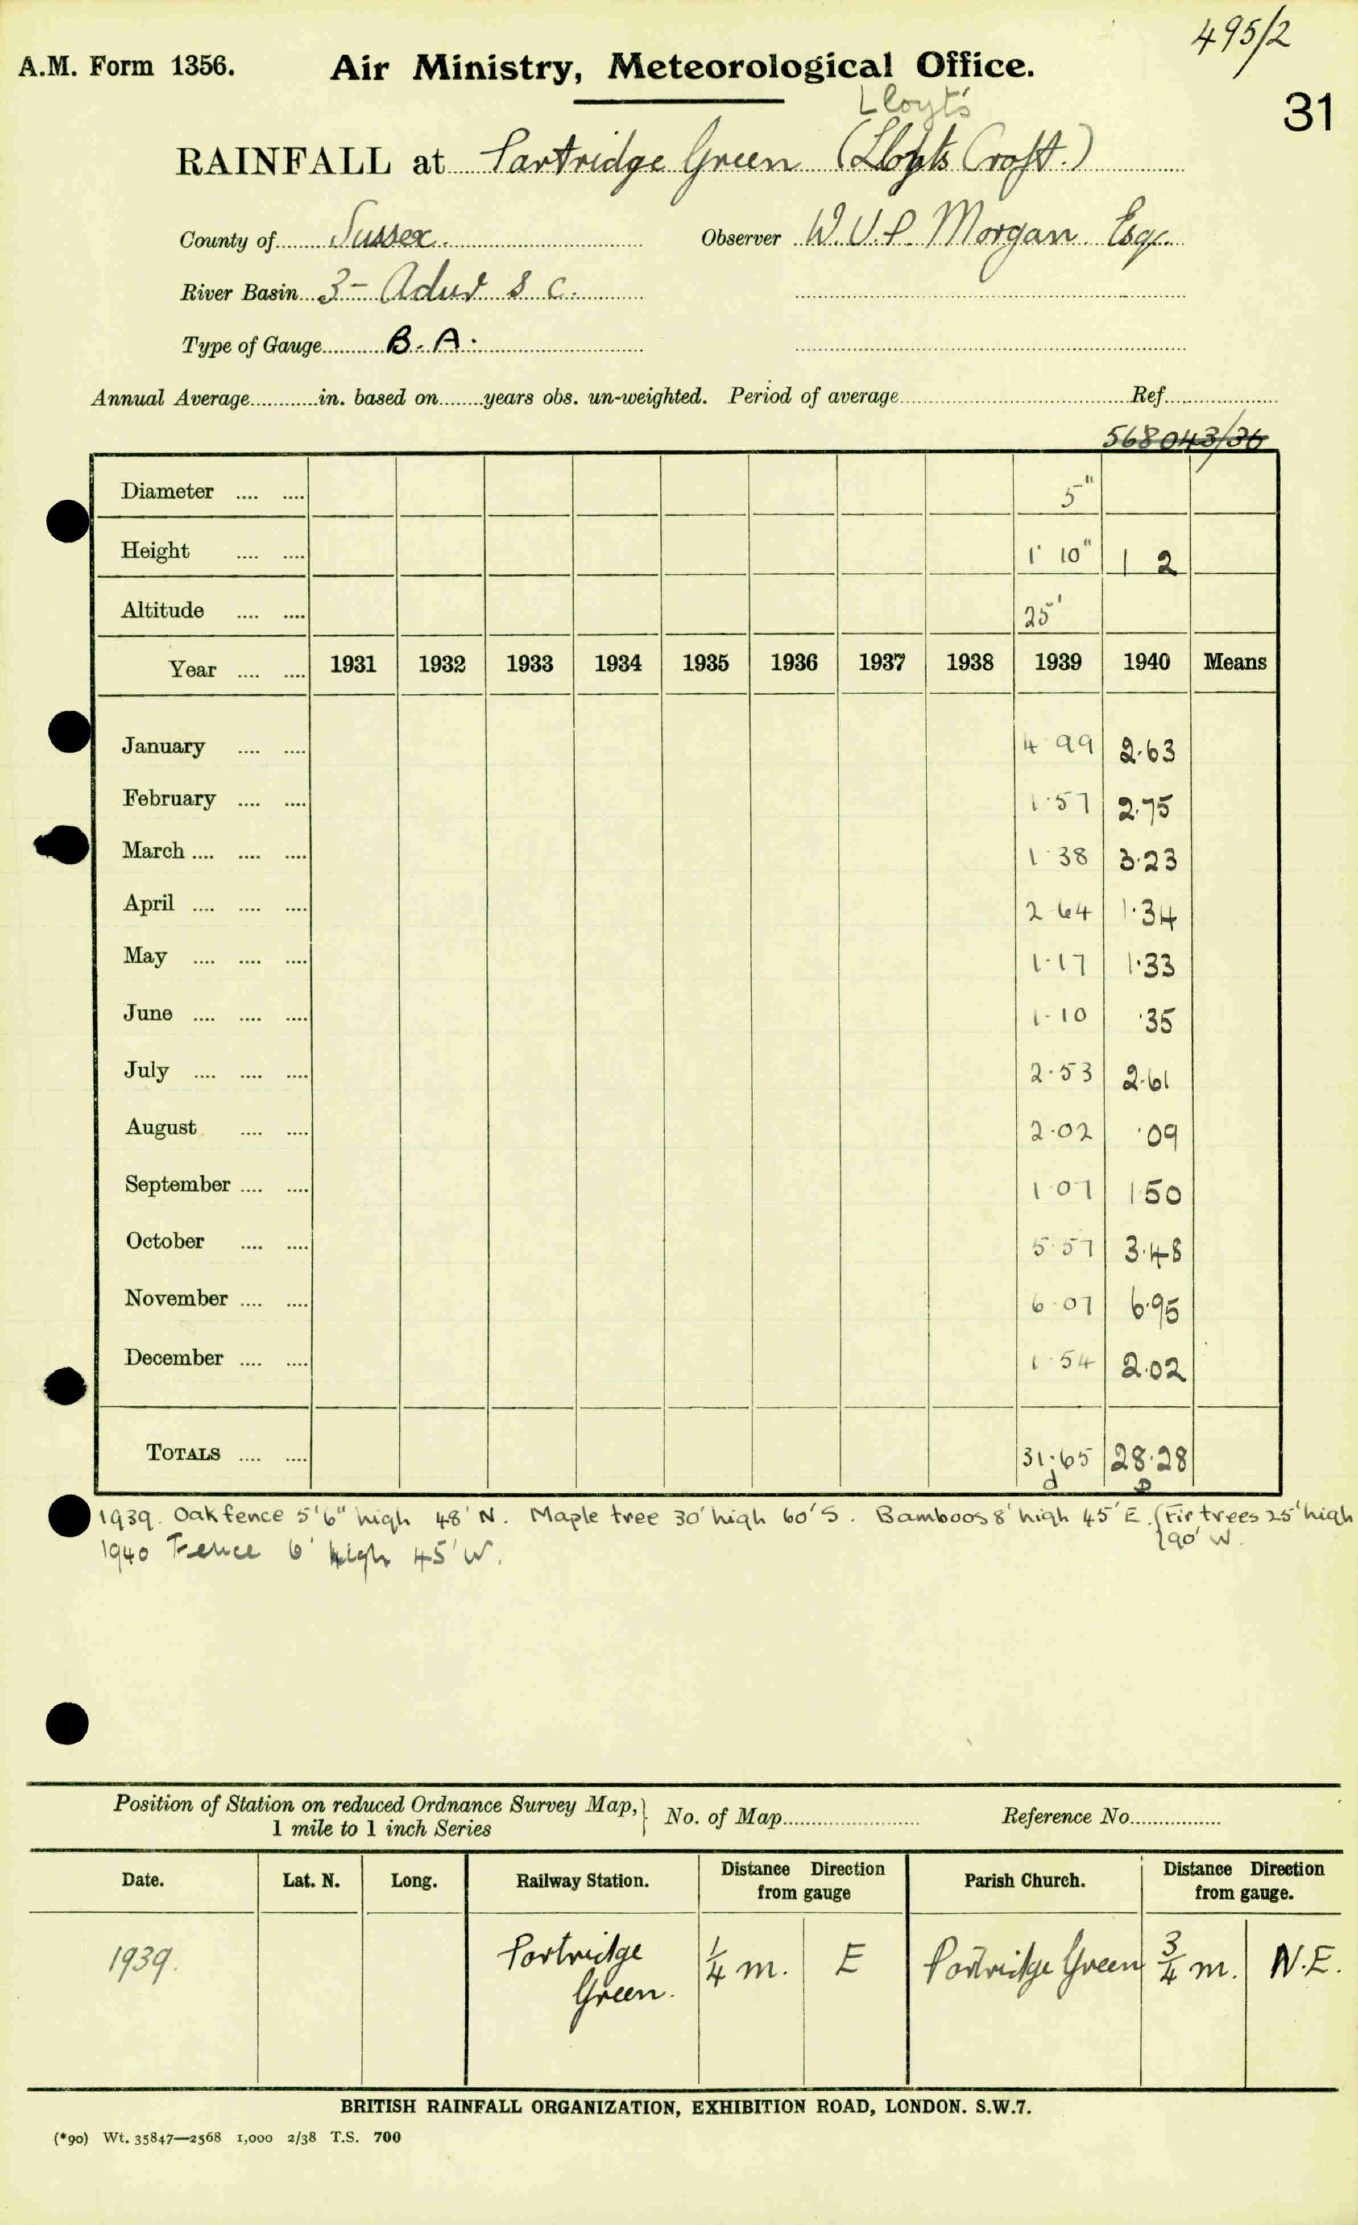 495/2
A.M. Form 1356. Air Ministry, Meteorological Office.
31
Lloyt's
RAINFALL at Partridge Green (Lloyts Croft.)
County of Sussex. Observer W.V.P. Morgan Esqr.
River Basin 3 – Adur & C.
Type of Gauge B.A.
Annual Average in. based on years obs. un-weighted. Period of average Ref.
568043/36
Diameter 5"
Height 1' 10" 1 2
Altitude 25'
Year 1931 1932 1933 1934 1935 1936 1937 1938 1939 1940 Means
January 4 99 2.63
February 1.57 2.75
March 1 38 3.23
April 2 64 1.34
May 1.17 1.33
June 1.10 .35
July 2.53 2.61
August 2.02 .09
September 1 07 1 50
October 5.57 3.48
November 6 07 6.95
December 1.54 2.02
TOTALS 31.65 28.28
d D
1939. Oak fence 5'6" high 48' N. Maple tree 30' high 60' S. Bamboos 8' high 45' E. (Fir trees 25' high
90' W.
1940 Fence 6' high 45' W.
Position of Station on reduced Ordnance Survey Map, No. of Map Reference No.
1 mile to 1 inch Series
Date. Lat. N. Long. Railway Station. Distance Direction Parish Church. Distance Direction
from gauge from gauge.
1939. Partridge Green. 1/4 m. E Partridge Green 3/4 m. N.E.
BRITISH RAINFALL ORGANIZATION, EXHIBITION ROAD, LONDON. S.W.7.
(*90) Wt. 35847—2568 1,000 2/38 T.S. 700